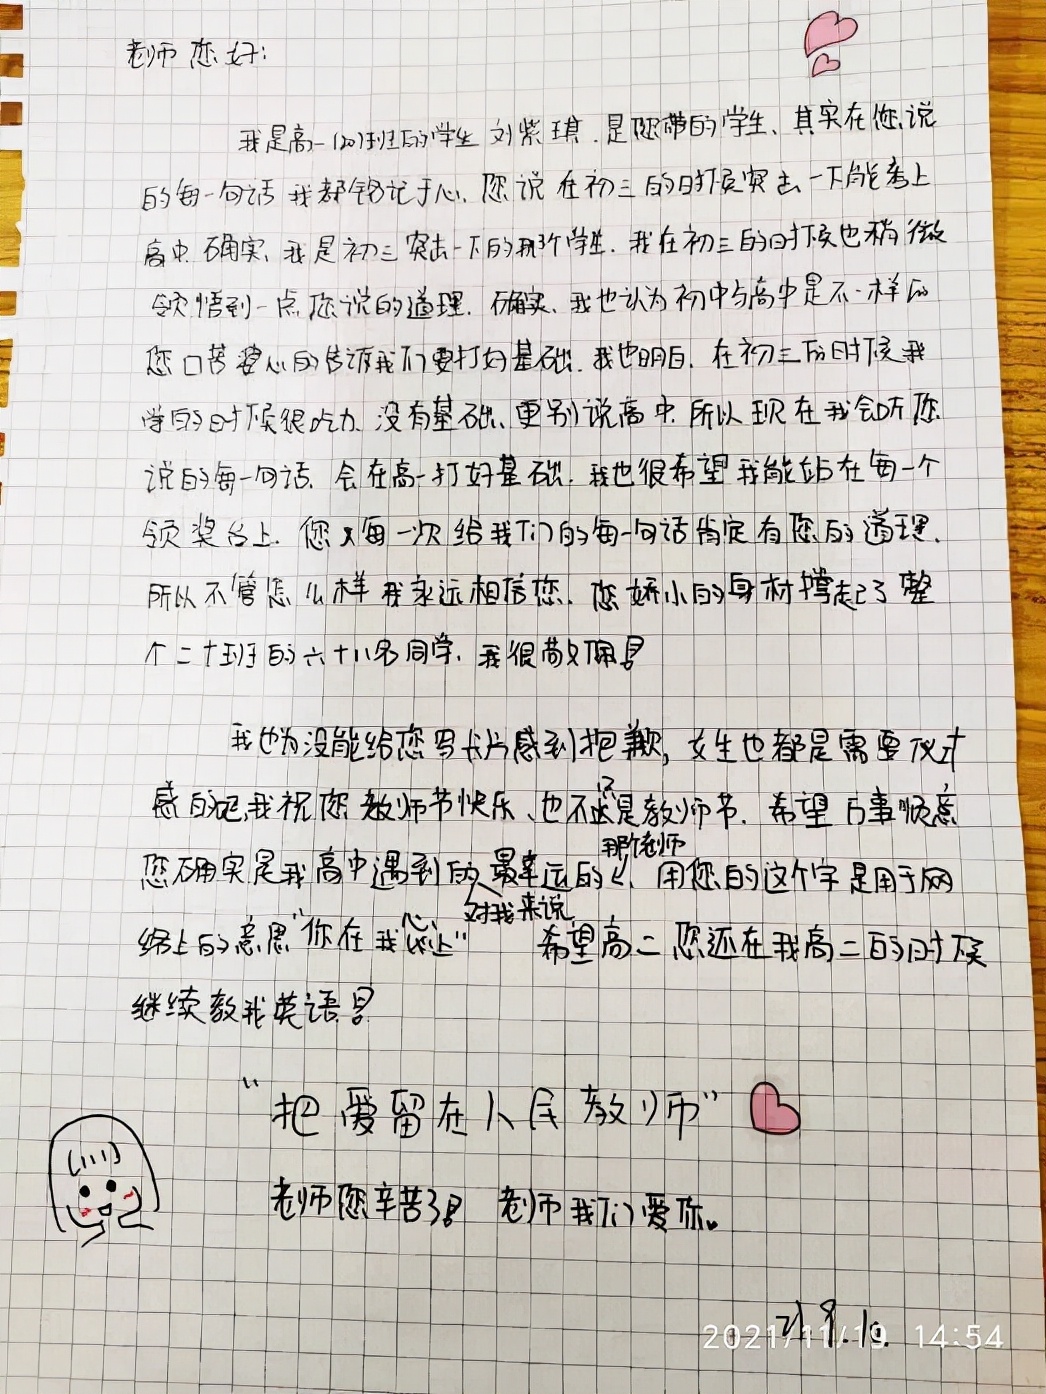 老师您好:
我是高一(20)班的学生刘紫琪.是您带的学生、其实在您说
的每一句话我都铭记于心.您说在初三的时候突击一下能考上
高中.确实,我是初三突击一下的那个学生.我在初三的时候也稍微
领悟到一点您说的道理.确实、我也认为初中与高中是不一样的
您口苦婆心的告诉我们要打好基础.我也明白.在初三的时候我
学的时候很吃力.没有基础、更别说高中.所以现在我会听您
说的每一句话.会在高一打好基础.我也很希望我能站在每一个
领奖台上.您每一次给我们的每一句话肯定有您的道理.
所以不管怎么样我永远相信您.您娇小的身材撑起了整
个二十班的六十八名同学.我很敬佩!
我也为没能给您写卡片感到抱歉,女生也都是需要仪式
感的吧,我祝您教师节快乐、也不只是教师节.希望万事顺意
您确实是我高中遇到的对我来说最幸运的那个老师.用您的这个字是用于网
络上的意思"你在我心上" 希望高二您还在我高二的时候
继续教我英语!
"把爱留在人民教师"
老师您辛苦了! 老师我们爱你。
21.9.10
2021/11/19 14:54